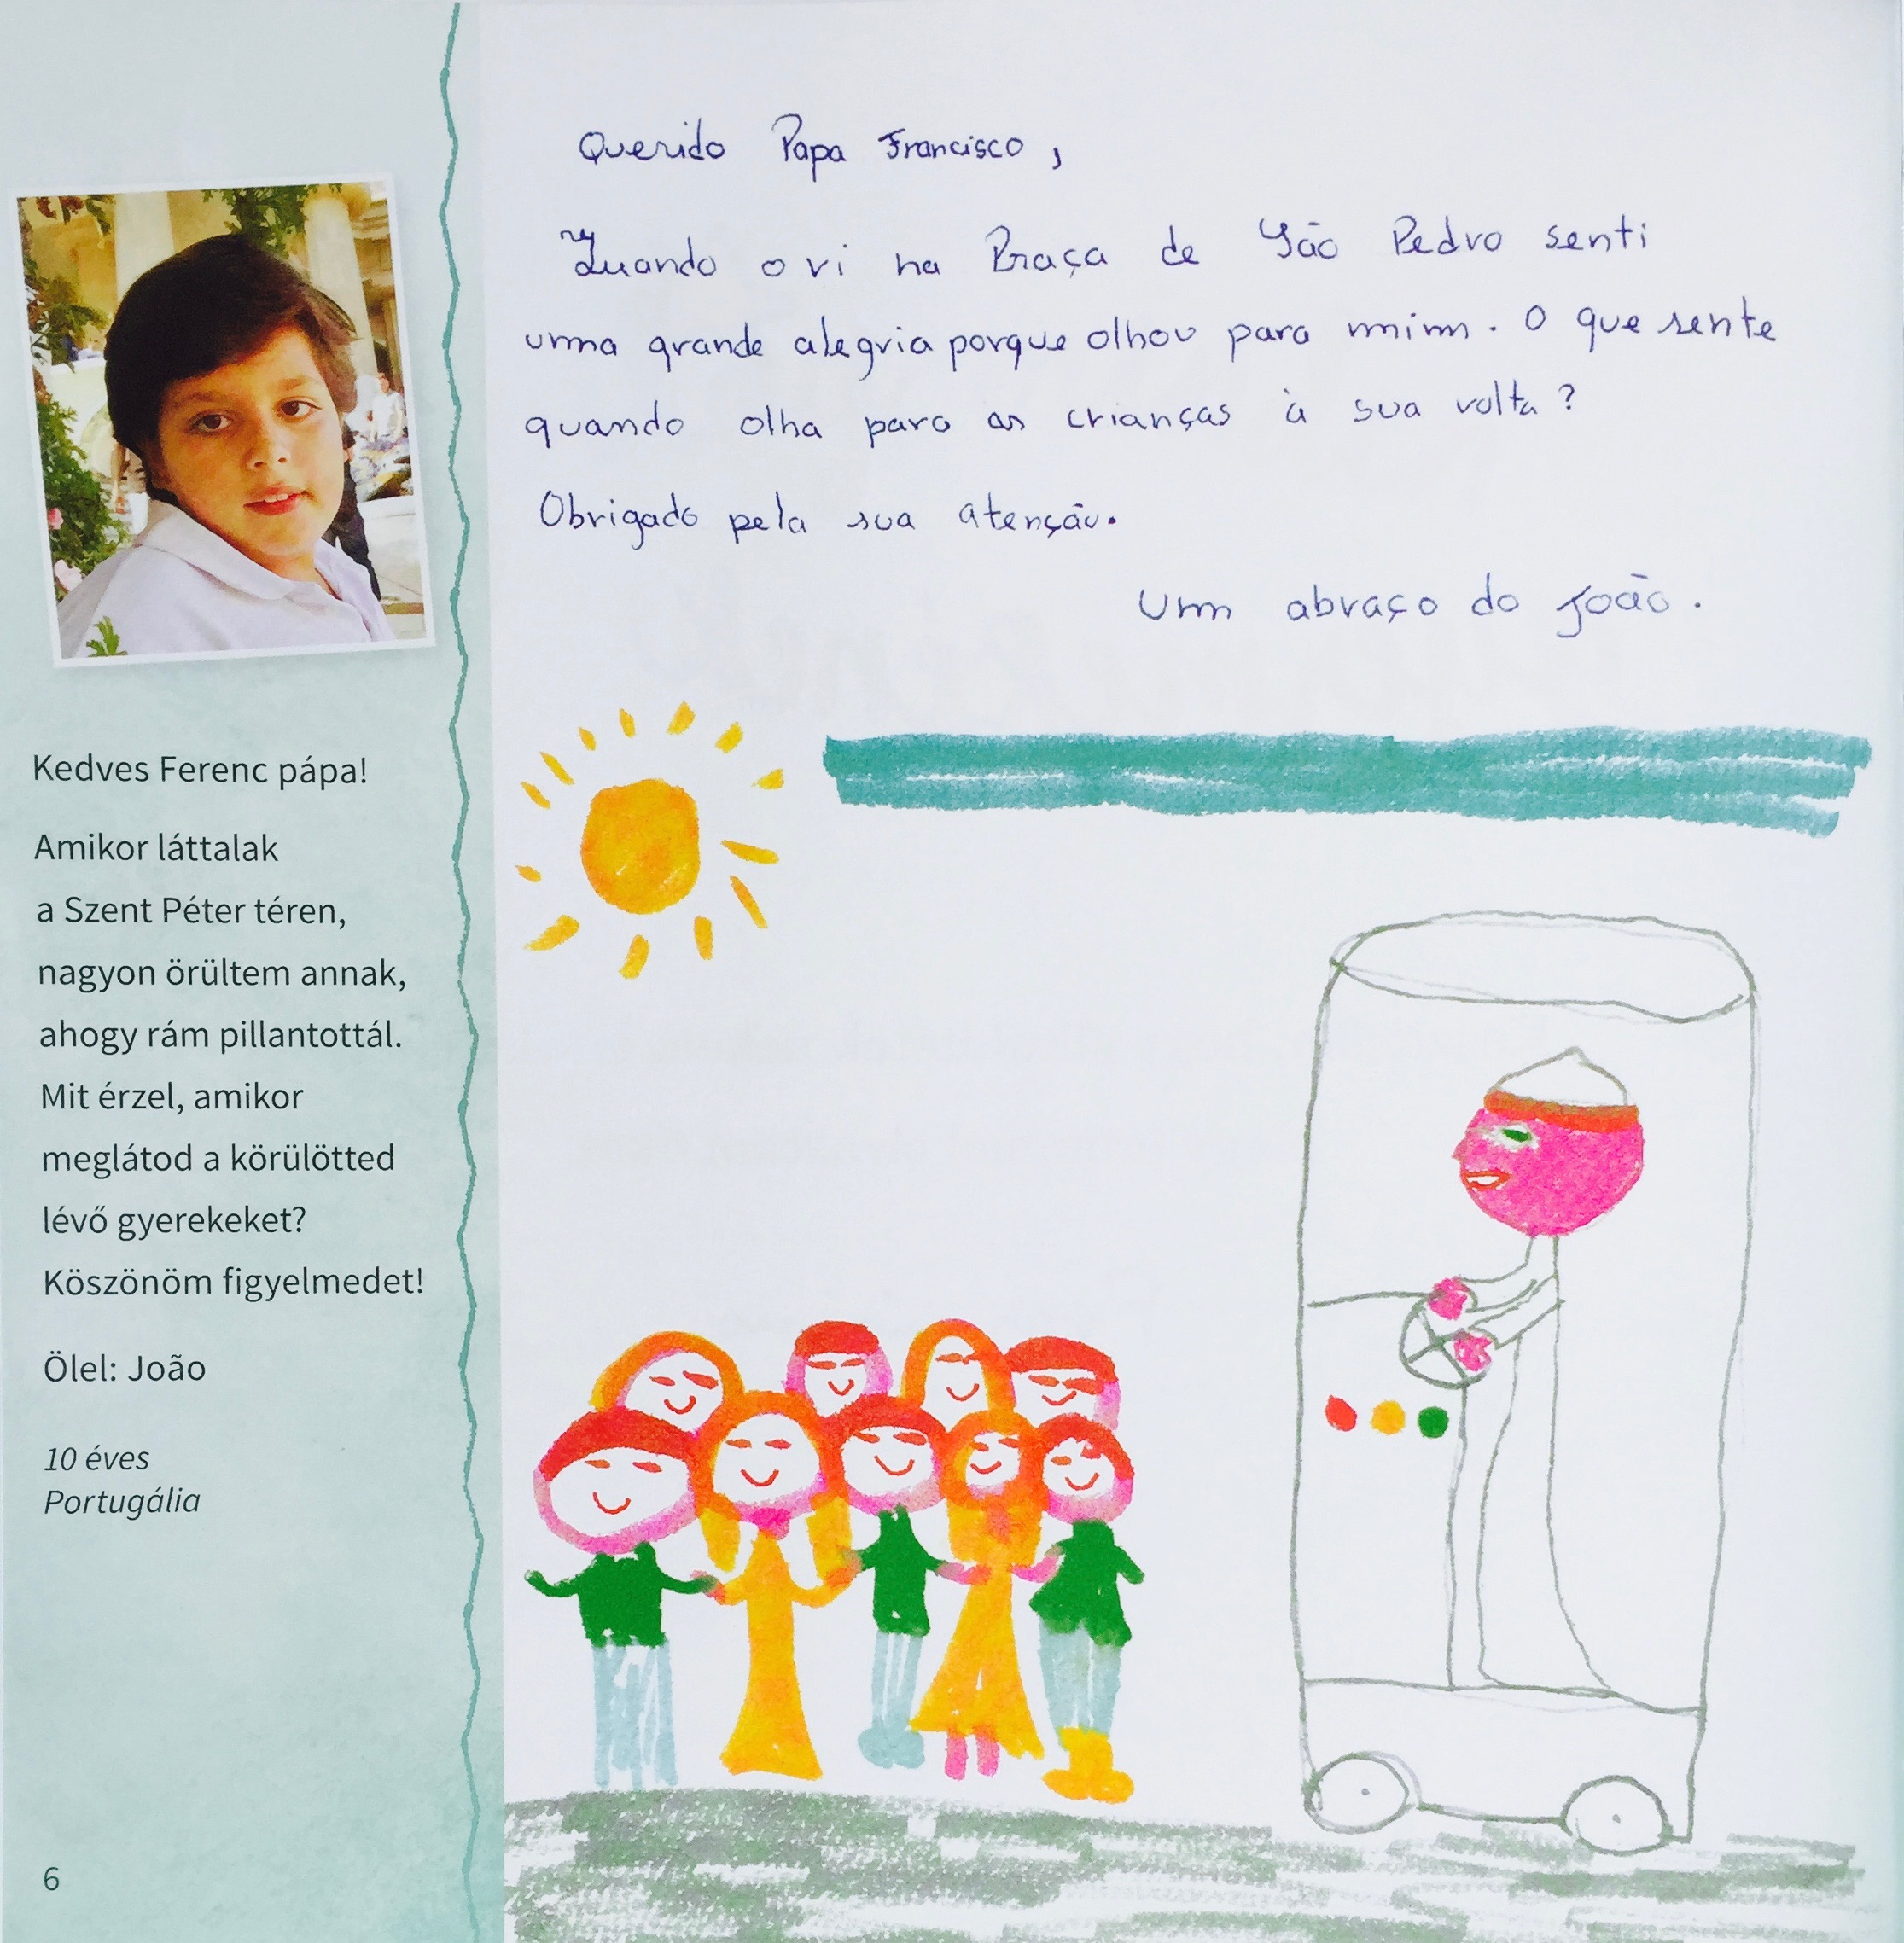 Querido Papa Francisco,
Quando o vi na Praça de São Pedro senti
uma grande alegria porque olhou para mim. O que sente
quando olha para as crianças à sua volta?
Obrigado pela sua atenção.
Um abraço do João.
Kedves Ferenc pápa!
Amikor láttalak
a Szent Péter téren,
nagyon örültem annak,
ahogy rám pillantottál.
Mit érzel, amikor
meglátod a körülötted
lévő gyerekeket?
Köszönöm figyelmedet!
Ölel: João
10 éves
Portugália
6